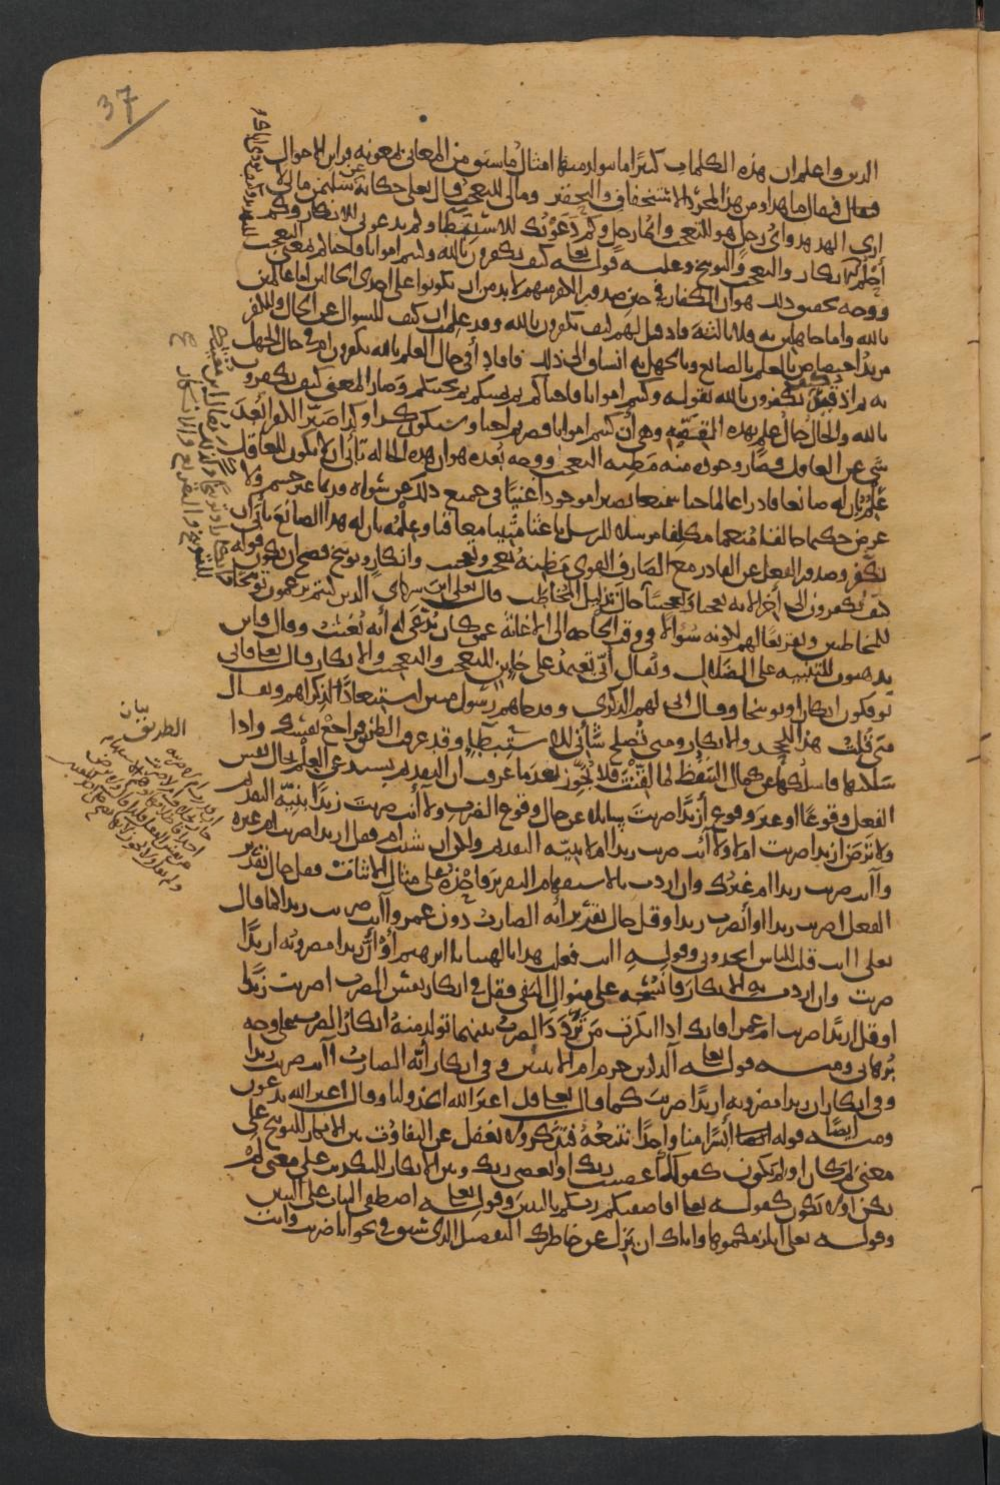 الدين واعلم ان هذه الكلمات كثيرا ما يتولد منها امثال ما سبق من المعاني بمعونة قراين الاحوال
فيقال ما هذا ومن هذا لمجرد الاستخفاف والتحقير ومالي للتعجب قال تعلى حكاية عن سليمن مالي لا
ارى الهدهد واي رجل هو للتعجب وايما رجل وكم دعوتك للاستبطاء وكم تدعوني للانكار وكم
احلم للانكار والتعجب والتوبيخ وعليه قوله تعا كيف تكفرون بالله وكنتم امواتا فاحياكم بمعنى التعجب
ووجه تحقيق ذلك هو ان الكفار في حين صدور الكفر منهم لا بد من ان يكونوا على احدى الحالين اما عالمين
بالله واما جاهلين به فلا ثالثة فاذا قيل لهم كيف تكفرون بالله وقد علمت ان كيف للسؤال عن الحال وللكفر
مزيد اختصاص بالعلم بالصانع وبالجهل به انساق الى ذلك فافاد أفي حال العلم بالله تكفرون ام في حال الجهل
به ثم اذ قيد كيف تكفرون بالله بقوله وكنتم امواتا فاحياكم ثم يميتكم ثم يحييكم وصار المعنى كيف تكفرون
بالله والحال حال علم بهذه القصة وهي أن كنتم امواتا فصرتم احيا وسيكون كذا وكذا صير الكفر أبعد
شي عن العاقل فصار وجوده منه مظنة التعجب ووجه بعده هو ان هذه الحالة تأبى أن لا يكون للعاقل
علم بان له صانعا قادرا عالما حيا سميعا بصيرا موجودا غنيا في جميع ذلك عن سواه قديما غير جسم ولا
عرض حكيما خالقا منعما مكلفا مرسلا للرسل باعثا مثيبا معاقبا وعلمه بان له هذا الصانع يأبى ان
يكفر وصدور الفعل عن القادر مع الصارف القوي مظنة تعجب وتعجيب وانكار وتوبيخ فصح ان يكون قوله
كيف تكفرون الى أخر الاية تعجبا وتعجيبا
للمخاطبين وتقريعا لهم لكونه سؤالا في وقت الحاجة الى الاغاثة عمن كان يدعي له أنه يغيث وقال فاين
تذهبون للتنبيه على الضلال ويقال أنى تعتمد على خاين للتعجب والتعجيب والانكار قال تعا فانى
توفكون انكارا وتوبيخا وقال انى لهم الذكرى وقد جاهم رسول مبين استبعادا لذكراهم ويقال
متى قلت هذا للجحد والانكار ومتى تصلح شأني للاستبطا وقد عرفت الطريق فراجع نفسك واذا
سلكتها فاسلكها عن كمال التيقظ لما لقنت فلا تجوز بعد ما عرفت ان التقديم يستدعي العلم بحال نفس
الفعل وقوعا او غير وقوع أزيدا ضربت سائلا عن حال وقوع الضرب ولا أأنت ضربت زيدا بنية التقديم
ولا ترض ازيدا ضربت ام لا ولا أأنت ضربت زيدا ام لا بنية التقديم ولكن ان شئت ام فقل ازيدا ضربت ام غيره
وأأنت ضربت زيدا ام غيرك وان اردت بالاستفهام التقرير فاحذه على مثال الاثبات فقل حال تقرير
الفعل اضربت زيدا او أتضرب زيدا وقل حال تقرير أنه الضارب دون عمرو أأنت ضربت زيدا كما قال
تعلى أانت قلت للناس اتخذوني وقوله أانت فعلت هذا بالهتنا يا ابرهيم أو أن زيدا مضروبه ازيدا
ضربت وان اردت به الانكار فانسجه على منوال النفي فقل في انكار نفس الضرب اضربت زيدا
او قل ازيدا ضربت ام عمرا فانك اذا انكرت من تردد الضرب بينهما تولد منه انكار الضرب على وجه
برهاني ومنه قوله تعا آلذكرين حرم ام الانثيين وفي انكار أنه الضارب أأنت ضربت زيدا
وفي انكار ان زيدا مضروبه ازيدا ضربت كما قال تعا قل اغير الله اتخذ وليا وقال اغير الله تدعون
ومنه ايضا قوله أبشرا منا واحدا نتبعه فتذكر ولا تغفل عن التفاوت بين الانكار للتوبيخ على
معنى لم كان او لم يكون كقولك أعصيت ربك او أتعصي ربك وبين الانكار للتكذيب على معنى لم
يكن او لا يكون كقوله تعا افاصفيكم ربكم بالبنين وقوله تعا اصطفى البنات على البنين
وقوله تعلى انلزمكموها واياك ان يزل عن خاطرك التفصيل الذي سبق في نحو انا ضربت وانت
37
بيان
الطريق